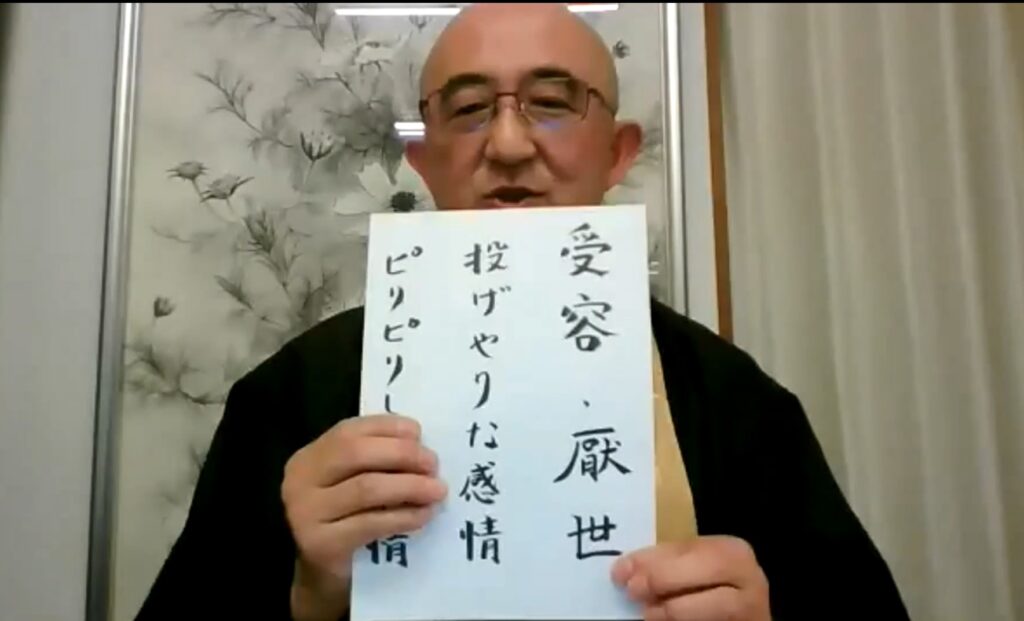 受容、厭世
投げやりな感情
ピリピリし
情